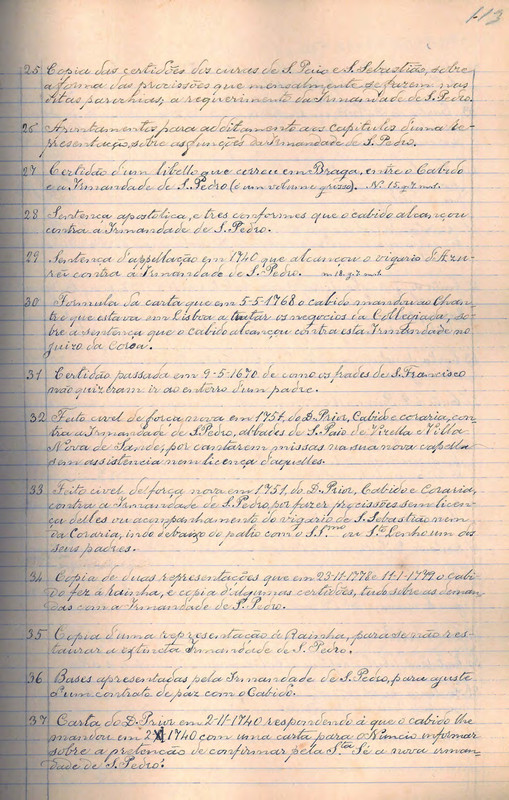 113
25 Copia das certidões dos curas de S. Paio e S. Sebastião, sobre
a forma das procissões que mensalmente se fazem nas
ditas parochias, a requerimento da Irmandade de S. Pedro.
26 Apuntamentos para additamento aos capitulos d'uma re-
presentação sobre as funções da Irmandade de S. Pedro.
27 Certidão d'um libello que correu em Braga, entre o Cabido
e a Irmandade de S. Pedro (é um volume grosso). N. 15. g. 7. mt.
28 Sentença apostolica, e tres conformes que o cabido alcançou
contra a Irmandade de S. Pedro.
29 Sentença d'appellação em 1740 que alcançou o vigario d'Azu-
rei contra a Irmandade de S. Pedro. n. 18. g. 7. mt.
30 Formula da carta que em 5-5-1768 o cabido mandou ao Chan-
tre que estava em Lisboa a tratar os negocios da Collegiada, so-
bre a sentença que o cabido alcançou contra esta Irmandade no
juizo da Corôa.
31 Certidão passada em 9-5-1670 de como os frades de S. Francisco
não quizeram ir ao enterro d'um padre.
32 Feito civel de força nova em 1757, do D. Prior, Cabido e coraria, con-
tra a Irmandade de S. Pedro, abbades de S. Paio de Vizella e Villa
Nova de Sande, por cantarem missas na sua nova capella
sem assistencia nem licença d'aquelles.
33 Feito civel de força nova em 1751, do D. Prior, Cabido e Coraria,
contra a Irmandade de S. Pedro por fazer procissões sem licen-
ça delles ou acompanhamento do vigario de S. Sebastião nem
da Coraria, indo debaixo do palio com o S.Smo ou Sto Lenho um dos
seus padres.
34 Copia de duas representações que em 23-11-1778 e 11-1-1779 o cabi-
do fez á Rainha, e copia d'algumas certidões, tudo sobre as deman-
das com a Irmandade de S. Pedro.
35 Copia d'uma representação á Rainha, para se não res-
taurar a extincta Irmandade de S. Pedro.
36 Bases apresentadas pela Irmandade de S. Pedro, para ajuste
d'um contrato de paz com o Cabido.
37 Carta do D. Prior em 2-11-1740 respondendo á que o cabido lhe
mandou em 1740 com uma carta para o Nuncio informar
sobre a pretenção de confirmar pela Sta Sé a nova irman-
dade de S. Pedro.